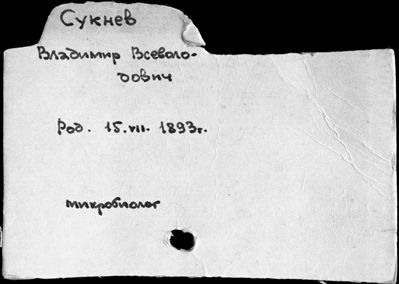 Сукнев
Владимир Всеволо-
дович
Род. 15.VII. 1893г.
микробиолог